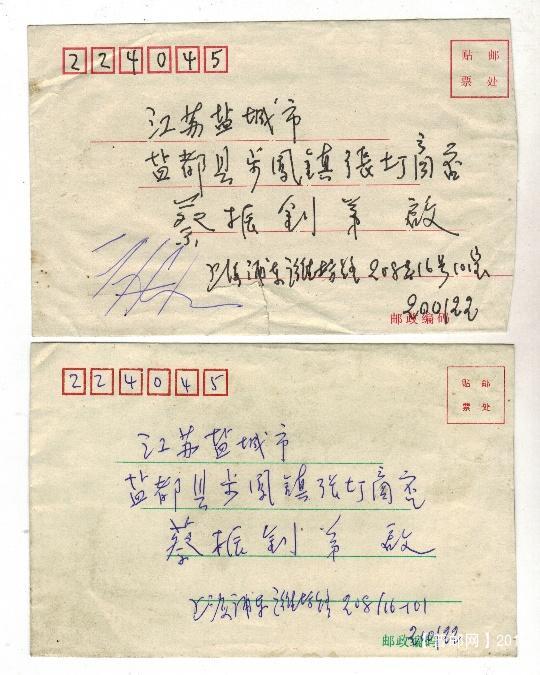 224045
贴 邮
票 处
江苏盐城市
盐都县步鳳镇張圩商店
蔡振釗弟 啟
上海浦东潍坊路208弄16号101室
200122
邮政编码
224045
贴 邮
票 处
江苏盐城市
盐都县步鳳镇张圩商店
蔡振釗弟 啟
上海浦东潍坊路208/16-101
200122
邮政编码
邮网】201